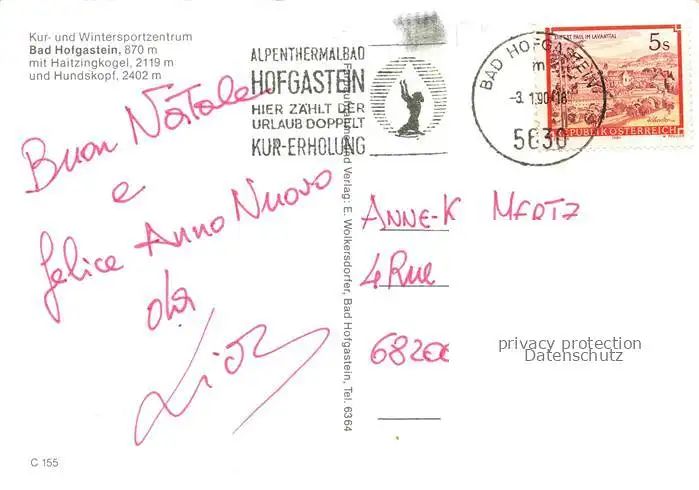 Kur- und Wintersportzentrum
Bad Hofgastein, 870 m
mit Haitzingkogel, 2119 m
und Hundskopf, 2402 m
Buon Natale
e
felice Anno Nuovo
C 155
ALPENTHERMALBAD
HOFGASTEIN
HIER ZÄHLT DER
URLAUB DOPPELT
KUR-ERHOLUNG
und Verlag: E. Weikersdorfer, Bad Hofgastein, Tel. 6364
BAD HOFGASTEIN
-3.1.90-18
5630
ST. PAUL IM LAVANTTAL
5s
REPUBLIK ÖSTERREICH
ANNE-K MERTZ
4 Rue
68200
privacy protection
Datenschutz